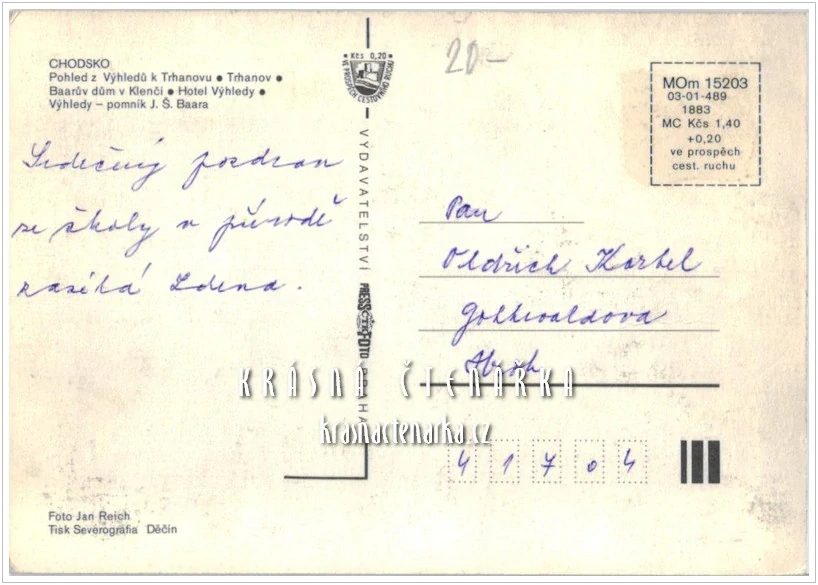 CHODSKO
Pohled z Výhledů k Trhanovu ● Trhanov ●
Baarův dům v Klenči ● Hotel Výhledy ●
Výhledy – pomník J. Š. Baara
Srdečný pozdrav
ze školy v přírodě
zasílá Zdena.
Kčs 0,20
VE PROSPĚCH CESTOVNÍHO RUCHU
VYDAVATELSTVÍ PRESSFOTO PRAHA
ČTK
20-
MOm 15203
03-01-489
1883
MC Kčs 1,40
+0,20
ve prospěch
cest. ruchu
Pan
Oldřich Korbel
Gottwaldova
41704
KRÁSNÁ ČTENÁŘKA
krasnactenarka.cz
Foto Jan Reich
Tisk Severografia Děčín